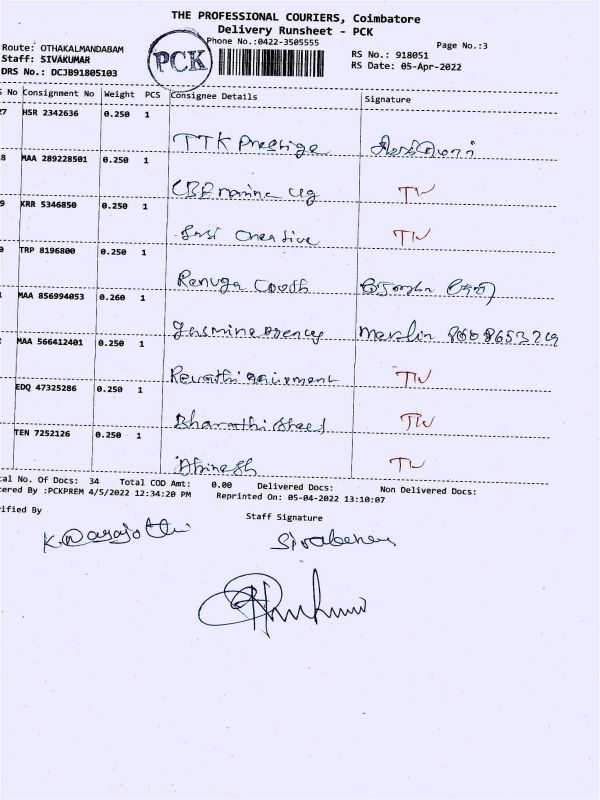 THE PROFESSIONAL COURIERS, Coimbatore
Delivery Runsheet - PCK
Phone No.:0422-3505555
Page No.:3
Route: OTHAKALMANDABAM
Staff: SIVAKUMAR
DRS No.: DCJB91805103
PCK
RS No.: 918051
RS Date: 05-Apr-2022
S No Consignment No Weight PCS Consignee Details Signature
27 HSR 2342636 0.250 1
TTK Prestige
8 MAA 289228501 0.250 1
TW
9 KRR 5346850 0.250 1
Creative TW
0 TRP 8196800 0.250 1
Renuga
1 MAA 856994053 0.260 1
Jasmine Merlin
2 MAA 566412401 0.250 1
Revathi TW
EDQ 47325286 0.250 1
Bharathi TW
TEN 7252126 0.250 1
Dhinesh TW
al No. Of Docs: 34 Total COD Amt: 0.00 Delivered Docs: Non Delivered Docs:
ered By :PCKPREM 4/5/2022 12:34:20 PM Reprinted On: 05-04-2022 13:10:07
rified By
Staff Signature